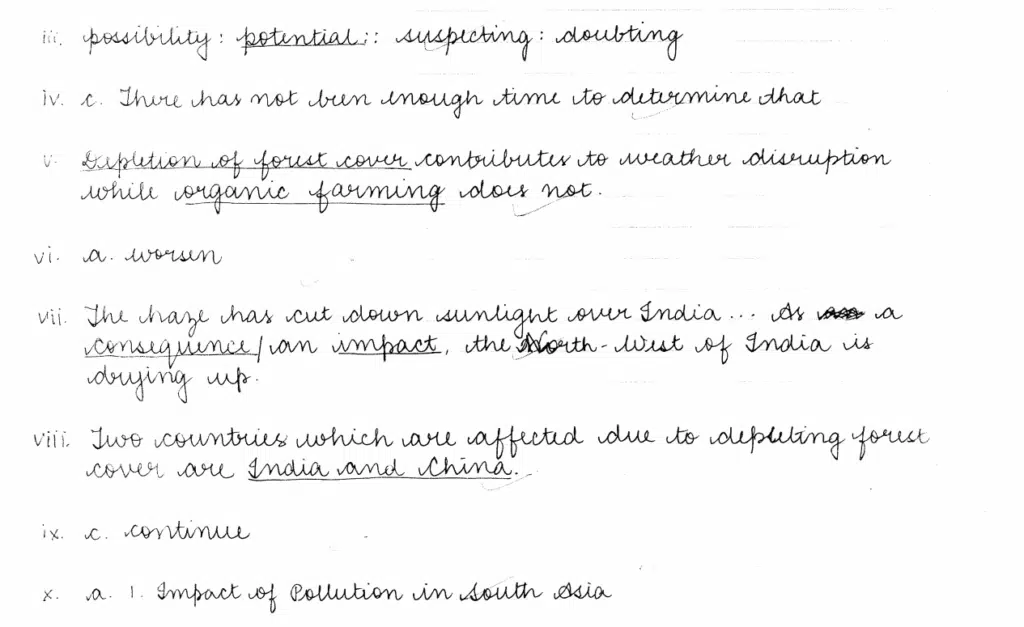 iii. possibility : potential :: suspecting : doubting
iv. c. There has not been enough time to determine that
v. Depletion of forest cover contributes to weather disruption
while organic farming does not.
vi. a. worsen
vii. The haze has cut down sunlight over India ... As a
consequence/an impact, the North-West of India is
drying up.
viii. Two countries which are affected due to depleting forest
cover are India and China.
ix. c. continue
x. a. 1. Impact of Pollution in South Asia